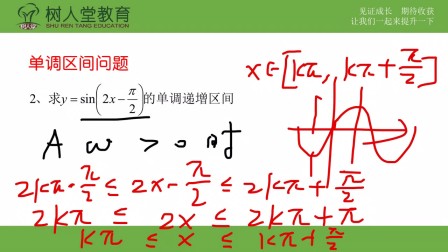 树人堂教育
SHU REN TANG EDUCATION
见证成长 期待收获
让我们一起来提升一下
单调区间问题
x∈[kπ, kπ+π/2]
2、求y=sin(2x-π/2)的单调递增区间
A ω >0 时
2kπ-π/2 ≤ 2x-π/2 ≤ 2kπ+π/2
2kπ ≤ 2x ≤ 2kπ+π
kπ ≤ x ≤ kπ+π/2